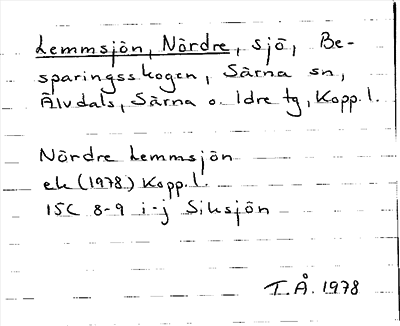 Lemmsjön, Nördre, sjö, Be-
sparingsskogen, Särna sn,
Älvdals, Särna o. Idre tg, Kopp. l.
Nördre Lemmsjön
ek (1978) Kopp. l.
15C 8-9 i-j Siksjön
T.Å. 1978